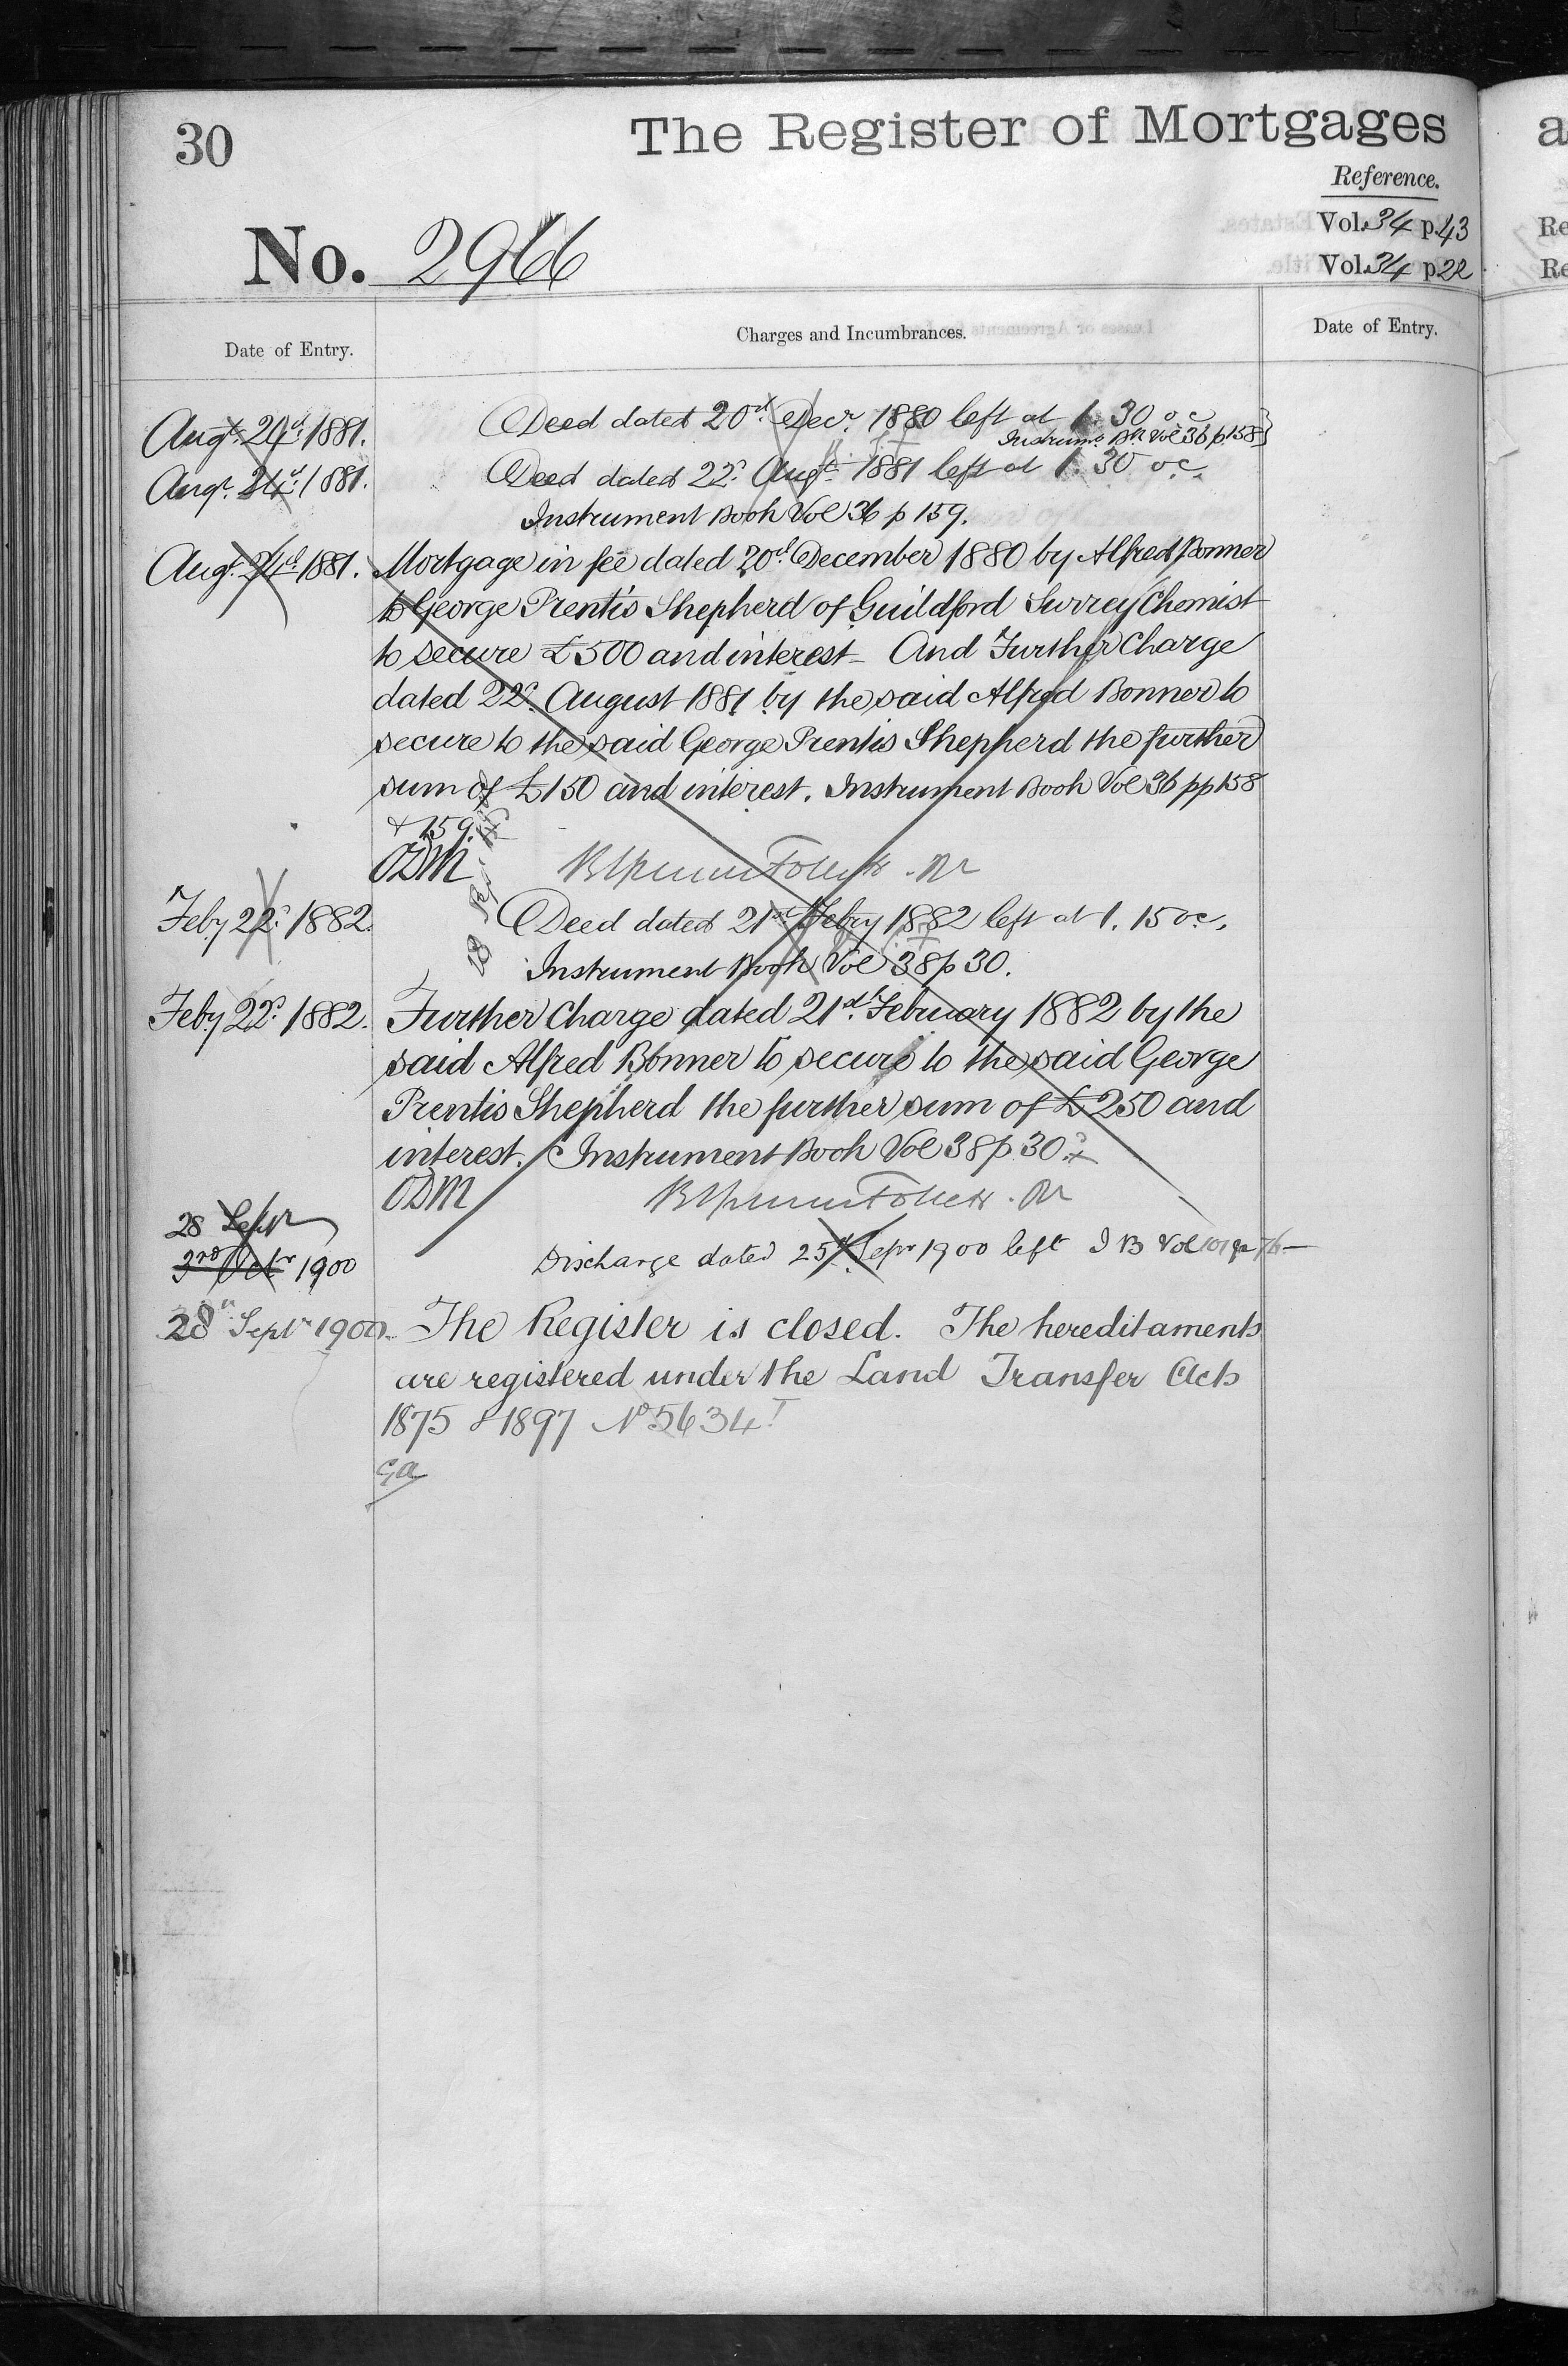 30
The Register of Mortgages
Reference.
Vol. 34 p. 43
No. 2966
Vol. 34 p 22
Date of Entry.
Charges and Incumbrances.
Date of Entry.
Augt. 24th 1881. Deed dated 20th Decr. 1880 left at 1.30 oc
Instrumt. Bk Vol 36 p 158
Augt. 24th 1881. Deed dated 22d. Augt. 1881 left at 1.30 oc.
Instrument Book Vol 36 p 159.
Augt. 24th 1881. Mortgage in fee dated 20th December 1880 by Alfred Bonner
to George Prentis Shepherd of Guildford Surrey Chemist
to secure £500 and interest - And Further Charge
dated 22d. August 1881 by the said Alfred Bonner to
secure to the said George Prentis Shepherd the further
sum of £150 and interest. Instrument Book Vol 36 pp 158
& 159.
ODM
Feby 22d. 1882. Deed dated 21st Febry 1882 left at 1.15 oc.
Instrument Book Vol 38 p 30.
Feby 22d. 1882. Further Charge dated 21st. February 1882 by the
said Alfred Bonner to secure to the said George
Prentis Shepherd the further sum of £250 and
interest. Instrument Book Vol 38 p 30.
ODM
28 Septr
3rd Octr 1900 Discharge dated 25th Sepr 1900 left I B Vol 101 p 76
28th Septr 1900. The Register is closed. The hereditaments
are registered under the Land Transfer Acts
1875 & 1897 No 5634
a
Re
Re